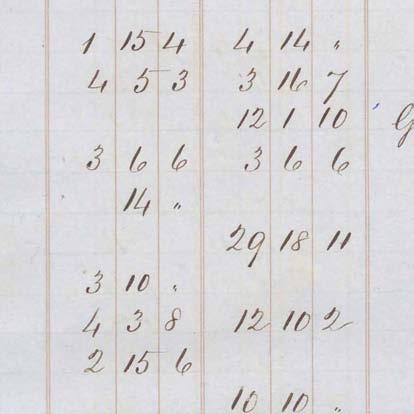 1 15 4 4 14 "
4 5 3 3 16 7
12 1 10 G
3 6 6 3 6 6
14 "
29 18 11
3 10 "
4 3 8 12 10 2
2 15 6
10 10 "